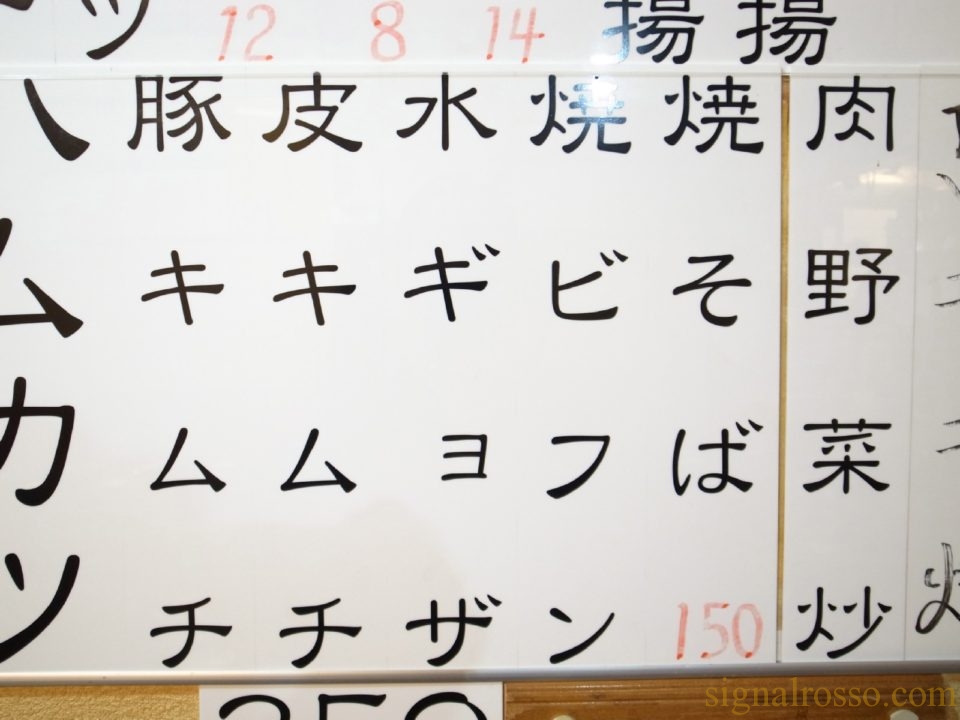 揚
揚
14
8
12
ツ
肉野菜炒
焼そば150
焼ビフン
水ギョザ
皮キムチ
豚キムチ
ハムカツ
signalrosso.com